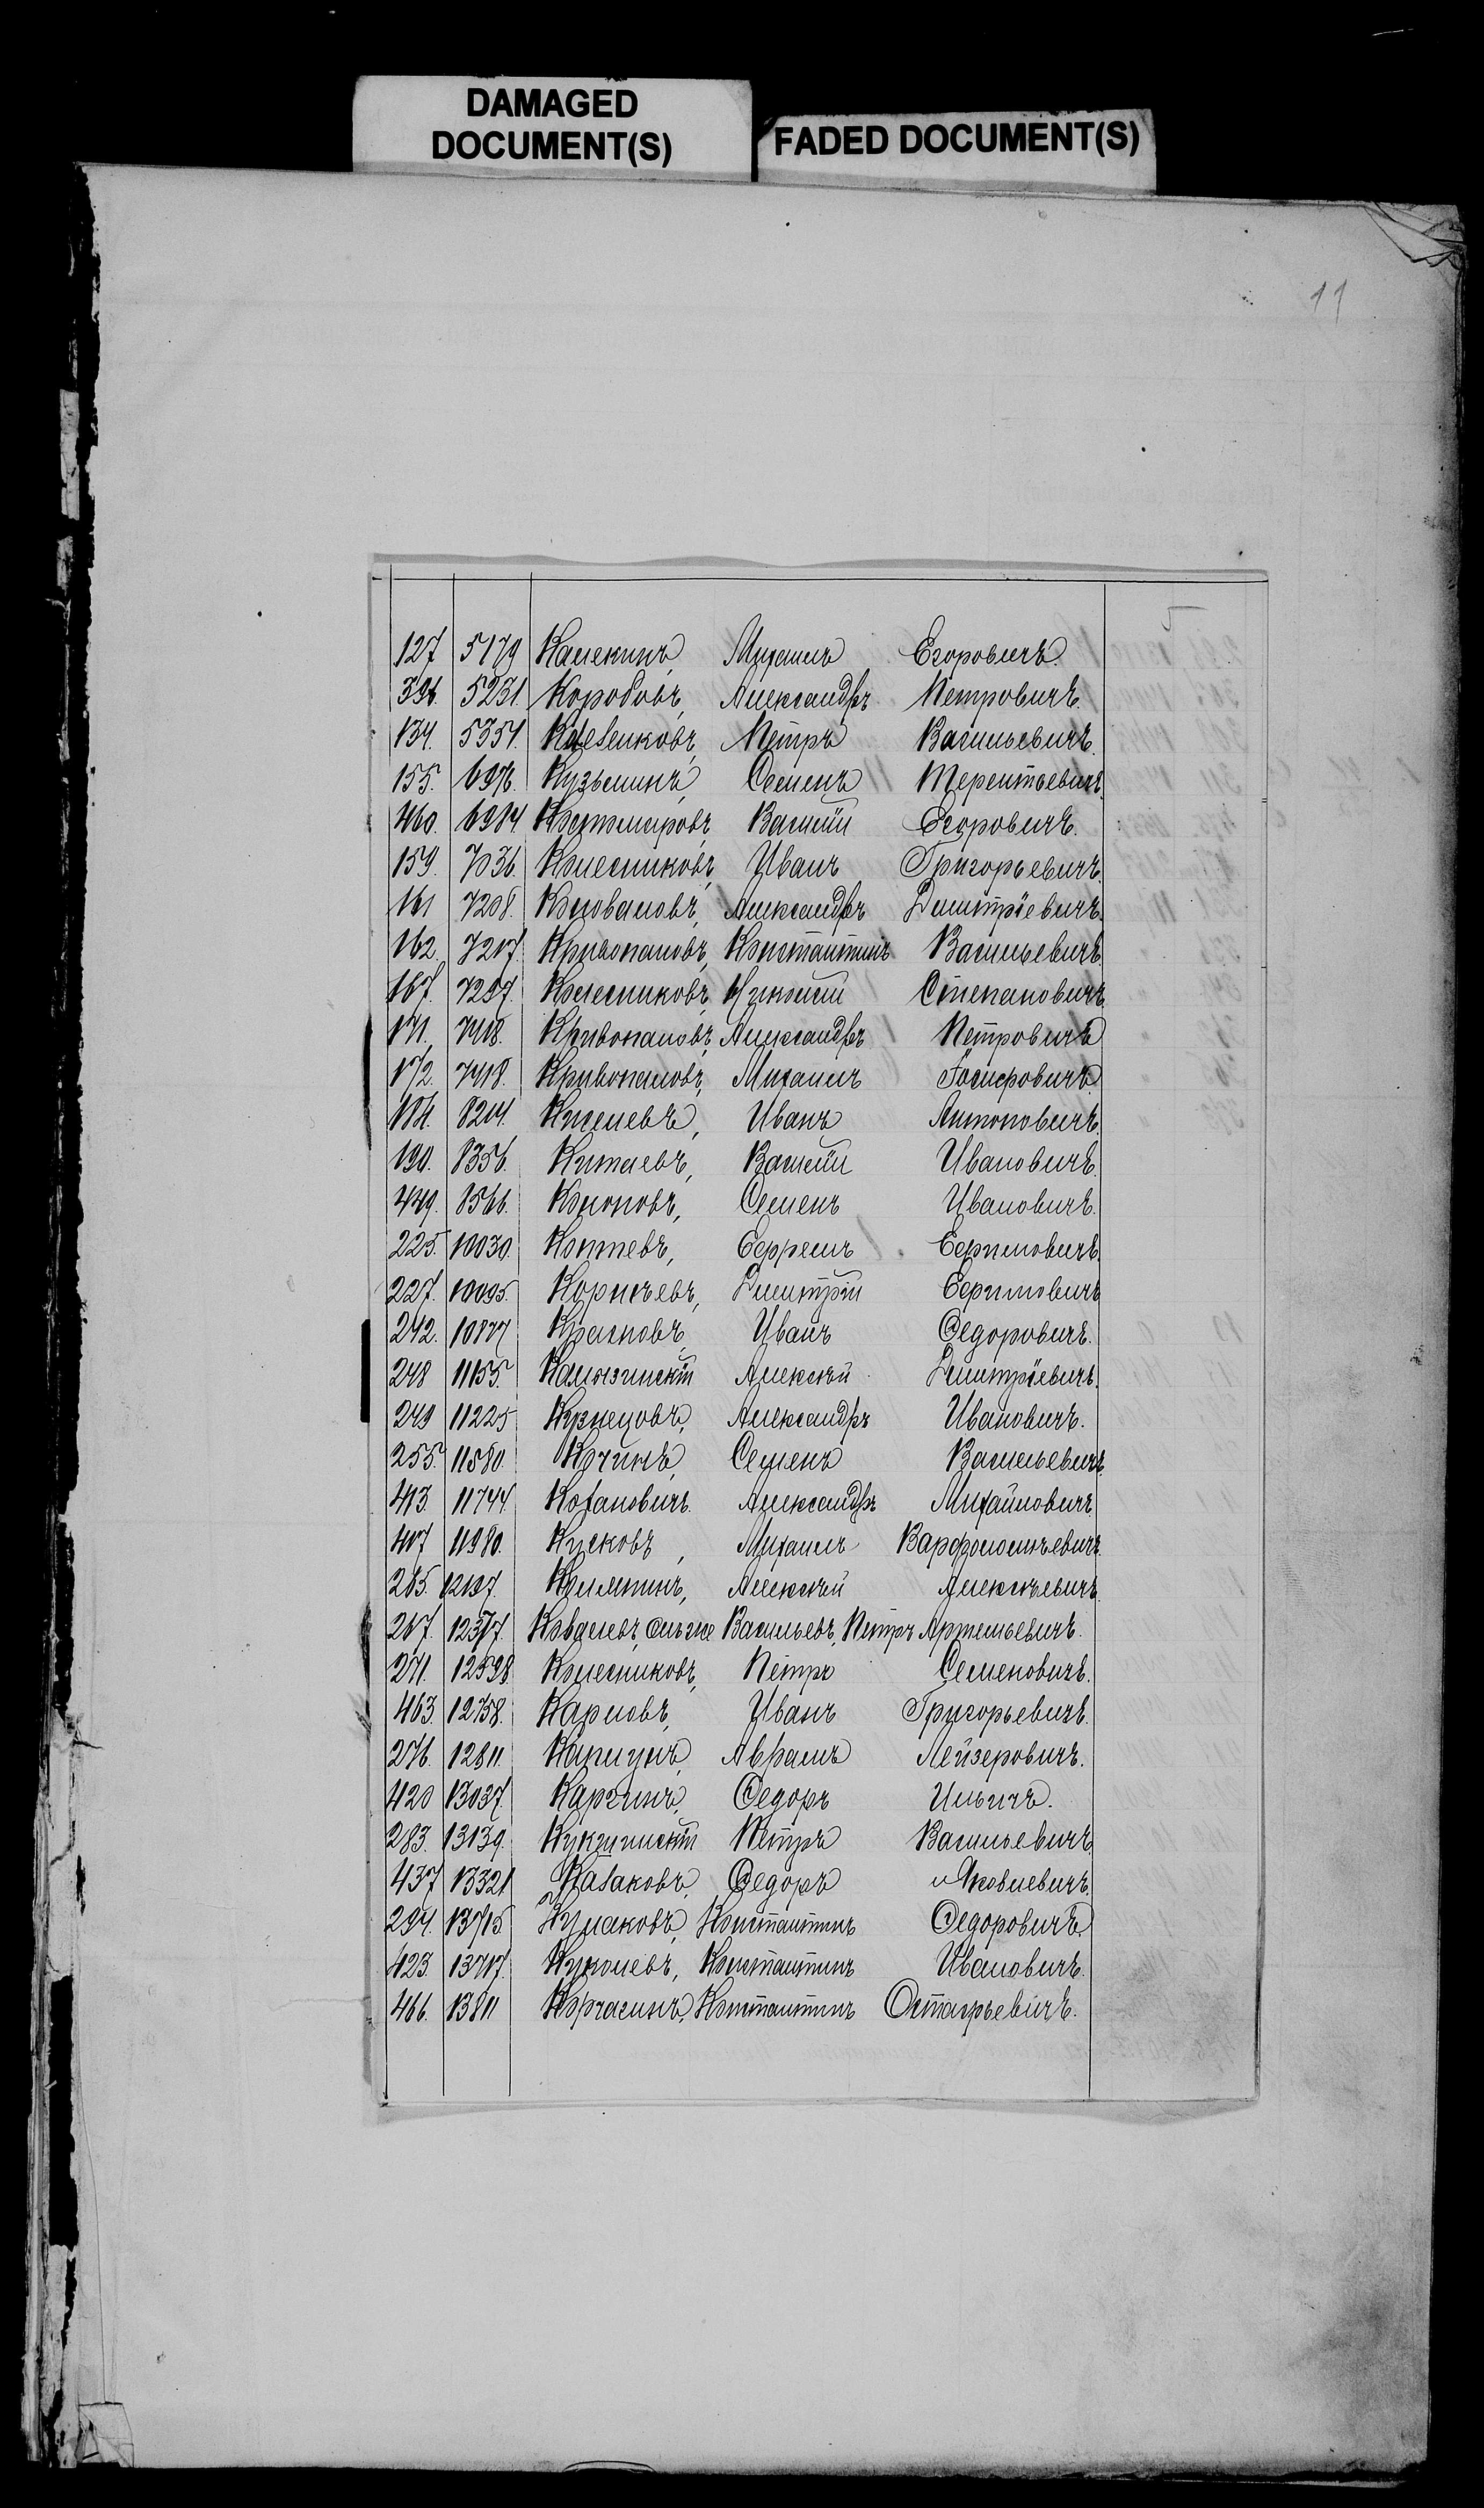 DAMAGED
DOCUMENT(S)
FADED DOCUMENT(S)
11
5
127 5179 Калекинъ, Михаилъ Егоровичъ.
396. 5231. Коробовъ, Александръ Петровичъ.
134. 5354. Петръ Васильевичъ.
155. 6976. Кузьминъ, Семенъ Терентьевичъ.
460. 6984. Костомаровъ, Василій Егоровичъ.
159. 7036. Колесниковъ, Иванъ Григорьевичъ.
161 7208. Коновановъ, Александръ Дмитріевичъ.
162. 7217. Кривопаловъ, Константинъ Васильевичъ.
167. 7297. Колесниковъ, Николай Степановичъ.
171. 7418. Кривопаловъ, Александръ Петровичъ
172. 7418. Кривопаловъ, Михаилъ Іосифовичъ
184. 8214. Киселевъ, Иванъ Антоновичъ.
190. 8356. Китаевъ, Василій Ивановичъ.
449. 8566. Кононовъ, Семенъ Ивановичъ.
225. 10030. Коптевъ, Ефремъ Ефимовичъ.
227. 10095. Корнѣевъ, Дмитрій Ефимовичъ
242. 10877 Красновъ, Иванъ Федоровичъ.
248 11155. Алексѣй Дмитріевичъ.
249 11225 Кузнецовъ, Александръ Ивановичъ.
255. 11580. Кочинъ, Семенъ Васильевичъ.
413. 11744. Кохановичъ. Александръ Михайловичъ
417 11980. Кусковъ, Михаилъ Варфоломѣевичъ.
265. 12197. Калмкинъ, Алексѣй Алексѣевичъ.
267. 12317. Ковалевъ, онъ же Васильевъ, Петръ Артемьевичъ.
271. 12598. Колесниковъ, Петръ Семеновичъ.
463. 12758. Карповъ, Иванъ Григорьевичъ.
276. 12811. Капцунъ, Абрамъ Лейзеровичъ.
420 13037. Каргинъ, Федоръ Ильичъ.
283. 13139. Петръ Васильевичъ
437 13321 Казаковъ, Федоръ Яковлевичъ.
294. 13715. Кулаковъ, Константинъ Федоровичъ.
423. 13717. Куколевъ, Константинъ Ивановичъ.
466. 13811 Корчагинъ, Константинъ Остафьевичъ.